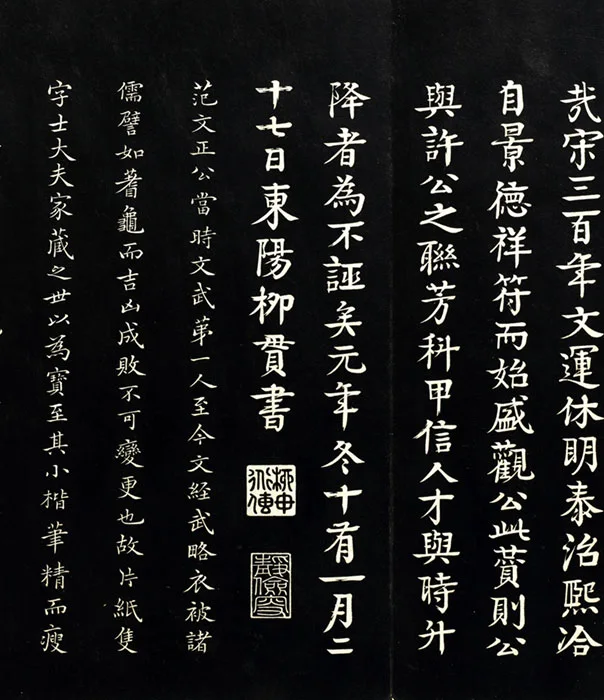 哉宋三百年文運休明泰治熙洽
自景德祥符而始盛觀公此賛則公
與許公之聯芳科甲信人才與時升
降者為不誣矣元年冬十有一月二
十七日東陽柳貫書
范文正公當時文武苐一人至今文經武略衣被諸
儒譬如蓍龜而吉凶成敗不可變更也故片紙隻
字士大夫家藏之世以為寶至其小楷筆精而瘦